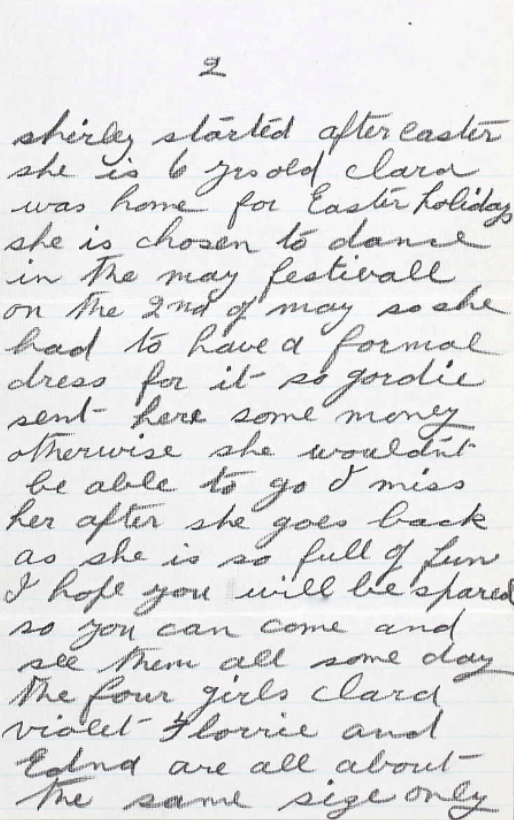 2
shirley started after easter
she is 6 yrs old clara
was home for Easter holidays
she is chosen to dance
in the may festivall
on the 2nd of may so she
had to have a formal
dress for it so gordie
sent here some money
otherwise she wouldn't
be able to go I miss
her after she goes back
as she is so full of fun
I hope you will be spared
so you can come and
see them all some day
the four girls clara
violet Florrie and
Edna are all about
the same size only